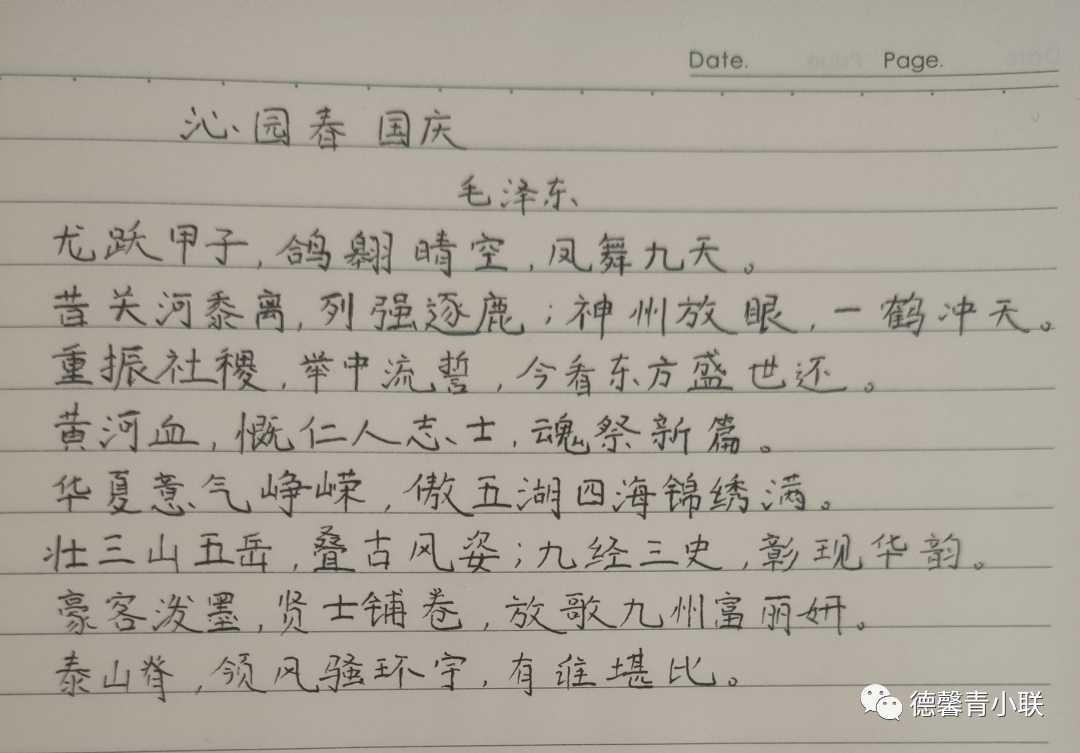 Date. Page.
沁园春 国庆
毛泽东
龙跃甲子,鸽翱晴空,凤舞九天。
昔关河黍离,列强逐鹿;神州放眼,一鹤冲天。
重振社稷,举中流誓,今看东方盛世还。
黄河血,慨仁人志士,魂祭新篇。
华夏意气峥嵘,傲五湖四海锦绣满。
壮三山五岳,叠古风姿;九经三史,彰现华韵。
豪客泼墨,贤士铺卷,放歌九州富丽妍。
泰山脊,领风骚环宇,有谁堪比。
德馨青小联